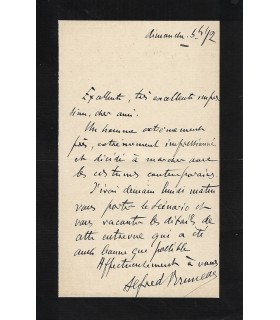 dimanche
Excellente, très excellente impres
sion, cher ami.
Un homme extrêmement
extrêmement impressionné
et décidé à marcher avec
les costumes contemporains.
J'irai demain lundi matin
vous porter le scénario et
vous raconter les détails de
cette entrevue qui a été
aussi bonne que possible
Affectueusement à vous
Alfred Bruneau